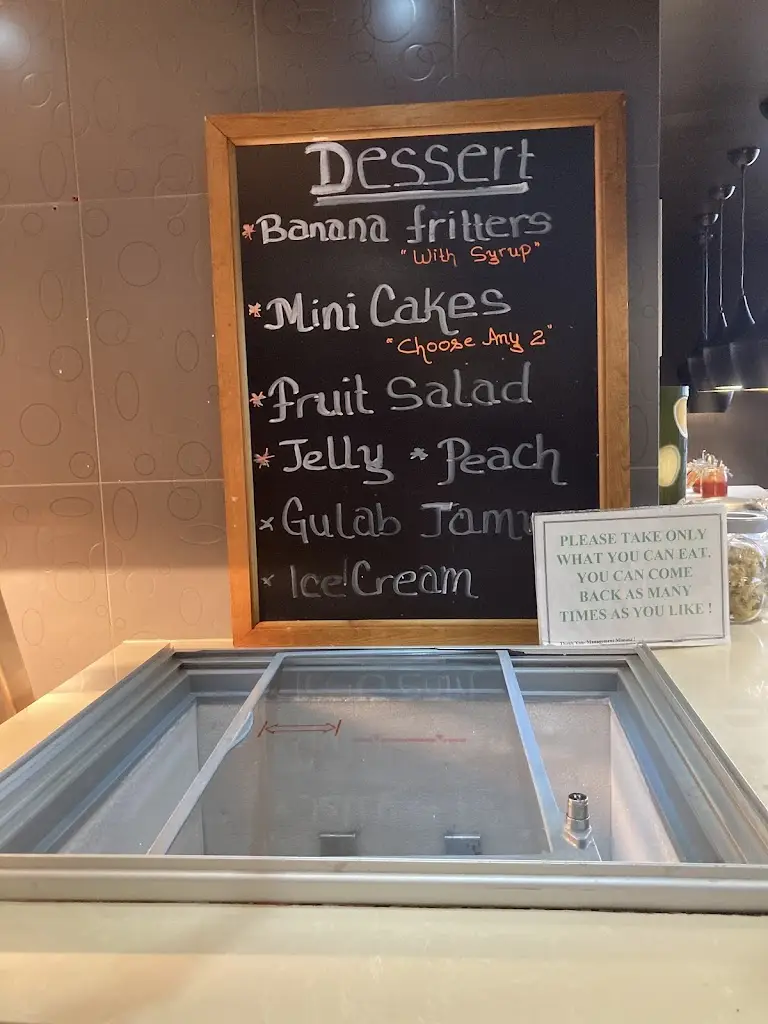 Dessert
* Banana fritters
"With Syrup"
* Mini Cakes
"Choose Any 2"
* Fruit Salad
* Jelly * Peach
* Gulab Jam
* Ice Cream
PLEASE TAKE ONLY
WHAT YOU CAN EAT.
YOU CAN COME
BACK AS MANY
TIMES AS YOU LIKE !